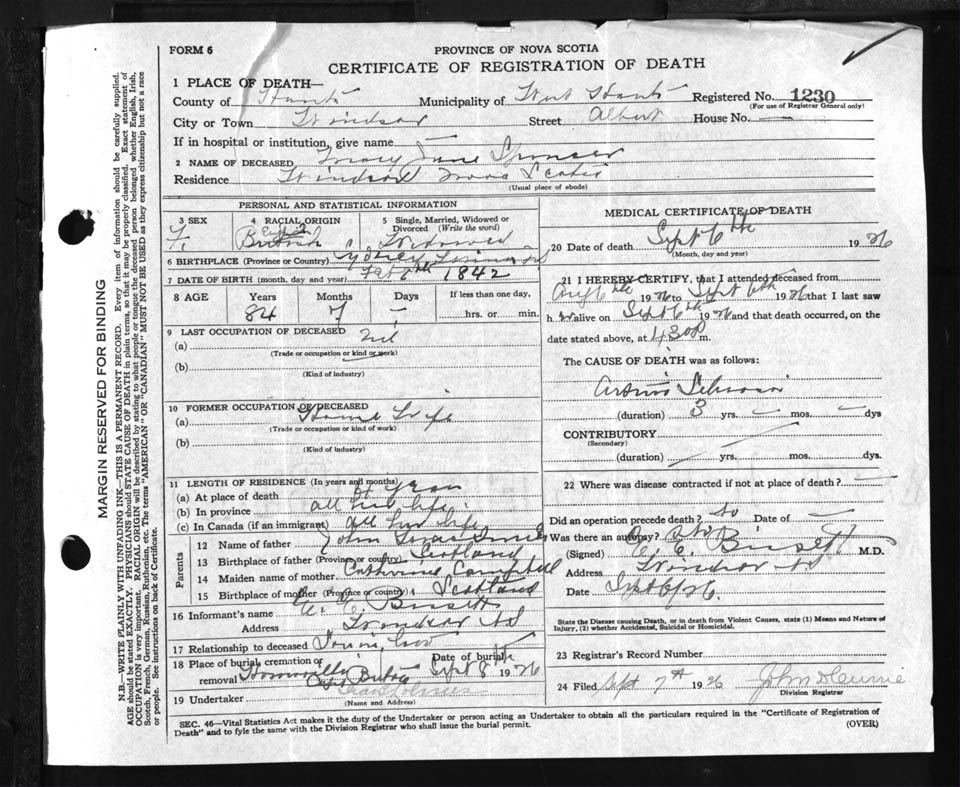 FORM 6
PROVINCE OF NOVA SCOTIA
CERTIFICATE OF REGISTRATION OF DEATH
1 PLACE OF DEATH—
County of Hants Municipality of West Hants Registered No. 1230
(For use of Registrar General only)
City or Town Windsor Street Albert House No. —
If in hospital or institution, give name —
2 NAME OF DECEASED Jane Spencer
Residence Windsor Nova Scotia
(Usual place of abode)
PERSONAL AND STATISTICAL INFORMATION
3 SEX F. 4 RACIAL ORIGIN British 5 Single, Married, Widowed or Divorced (Write the word) Widowed
6 BIRTHPLACE (Province or Country) Sydney
7 DATE OF BIRTH (month, day and year) Feb 6th 1842
8 AGE Years Months Days If less than one day,
84 7 — hrs. or min.
9 LAST OCCUPATION OF DECEASED
(a) Nil
(Trade or occupation or kind or work)
(b)
(Kind of industry)
10 FORMER OCCUPATION OF DECEASED
(a) House Wife
(Trade or occupation or kind of work)
(b)
(Kind of industry)
11 LENGTH OF RESIDENCE (In years and months)
(a) At place of death
(b) In province all her life
(c) In Canada (if an immigrant) all her life
Parents
12 Name of father John
13 Birthplace of father (Province or country) Scotland
14 Maiden name of mother Catherine Campbell
15 Birthplace of mother (Province or country) Scotland
16 Informant's name Bissett
Address Windsor NS
17 Relationship to deceased Son in Law
18 Place of burial, cremation or removal Date of burial Sept 8th 1926
19 Undertaker
(Name and Address)
MEDICAL CERTIFICATE OF DEATH
20 Date of death Sept 6th 1926
(Month, day and year)
21 I HEREBY CERTIFY, that I attended deceased from
Aug 6th 1926 to Sept 6th 1926 that I last saw
h er alive on Sept 6th 1926 and that death occurred, on the
date stated above, at 4.30 P m.
The CAUSE OF DEATH was as follows:
(duration) 3 yrs. — mos. — dys
CONTRIBUTORY
(Secondary)
(duration) yrs. mos. dys.
22 Where was disease contracted if not at place of death? —
Did an operation precede death? No Date of —
Was there an autopsy? No
(Signed) Bissett M.D.
Address Windsor NS
Date Sept 6/26.
State the Disease causing Death, or in death from Violent Causes, state (1) Means and Nature of
Injury, (2) whether Accidental, Suicidal or Homicidal.
23 Registrar's Record Number
24 Filed Sept 7th 1926 John
Division Registrar
SEC. 46—Vital Statistics Act makes it the duty of the Undertaker or person acting as Undertaker to obtain all the particulars required in the "Certificate of Registration of
Death" and to fyle the same with the Division Registrar who shall issue the burial permit. (OVER)
MARGIN RESERVED FOR BINDING
N.B.—WRITE PLAINLY WITH UNFADING INK—THIS IS A PERMANENT RECORD. Every item of information should be carefully supplied.
AGE should be stated EXACTLY. PHYSICIANS should STATE CAUSE OF DEATH in plain terms, so that it may be properly classified. Exact statement of
OCCUPATION is very important. RACIAL ORIGIN will be described by stating to what people or tongue the deceased person belonged whether English, Irish,
Scotch, French, German, Russian, Ruthenian, etc. The terms "AMERICAN" OR "CANADIAN" MUST NOT BE USED as they express citizenship but not a race
or people. See instructions on back of Certificate.